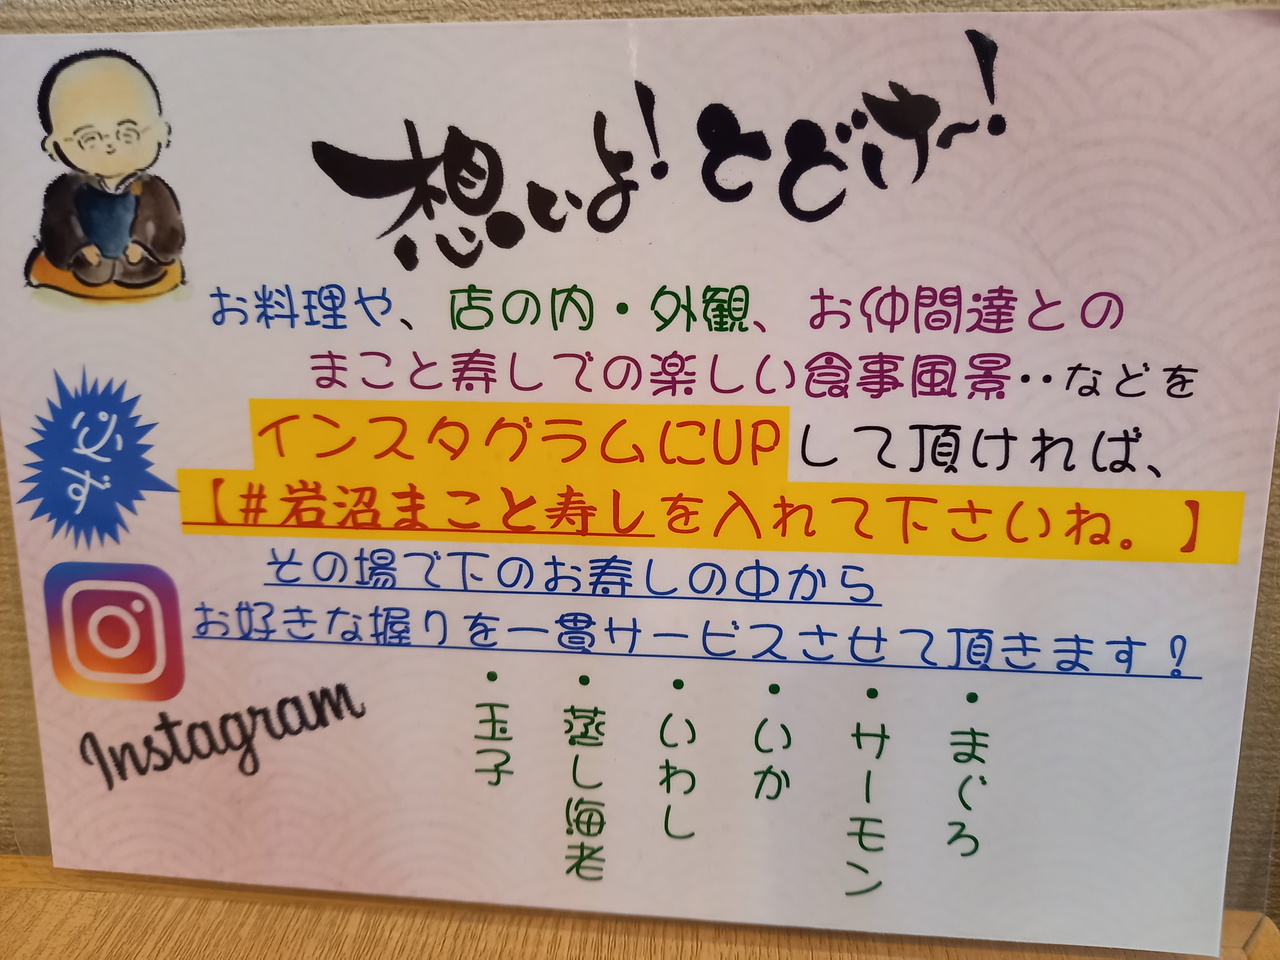 想いよ！とどけ〜！
お料理や、店の内・外観、お仲間達との
まこと寿しでの楽しい食事風景‥などを
インスタグラムにUPして頂ければ、
必ず
【#岩沼まこと寿しを入れて下さいね。】
その場で下のお寿しの中から
お好きな握りを一貫サービスさせて頂きます？
Instagram
・まぐろ
・サーモン
・いか
・いわし
・蒸し海老
・玉子